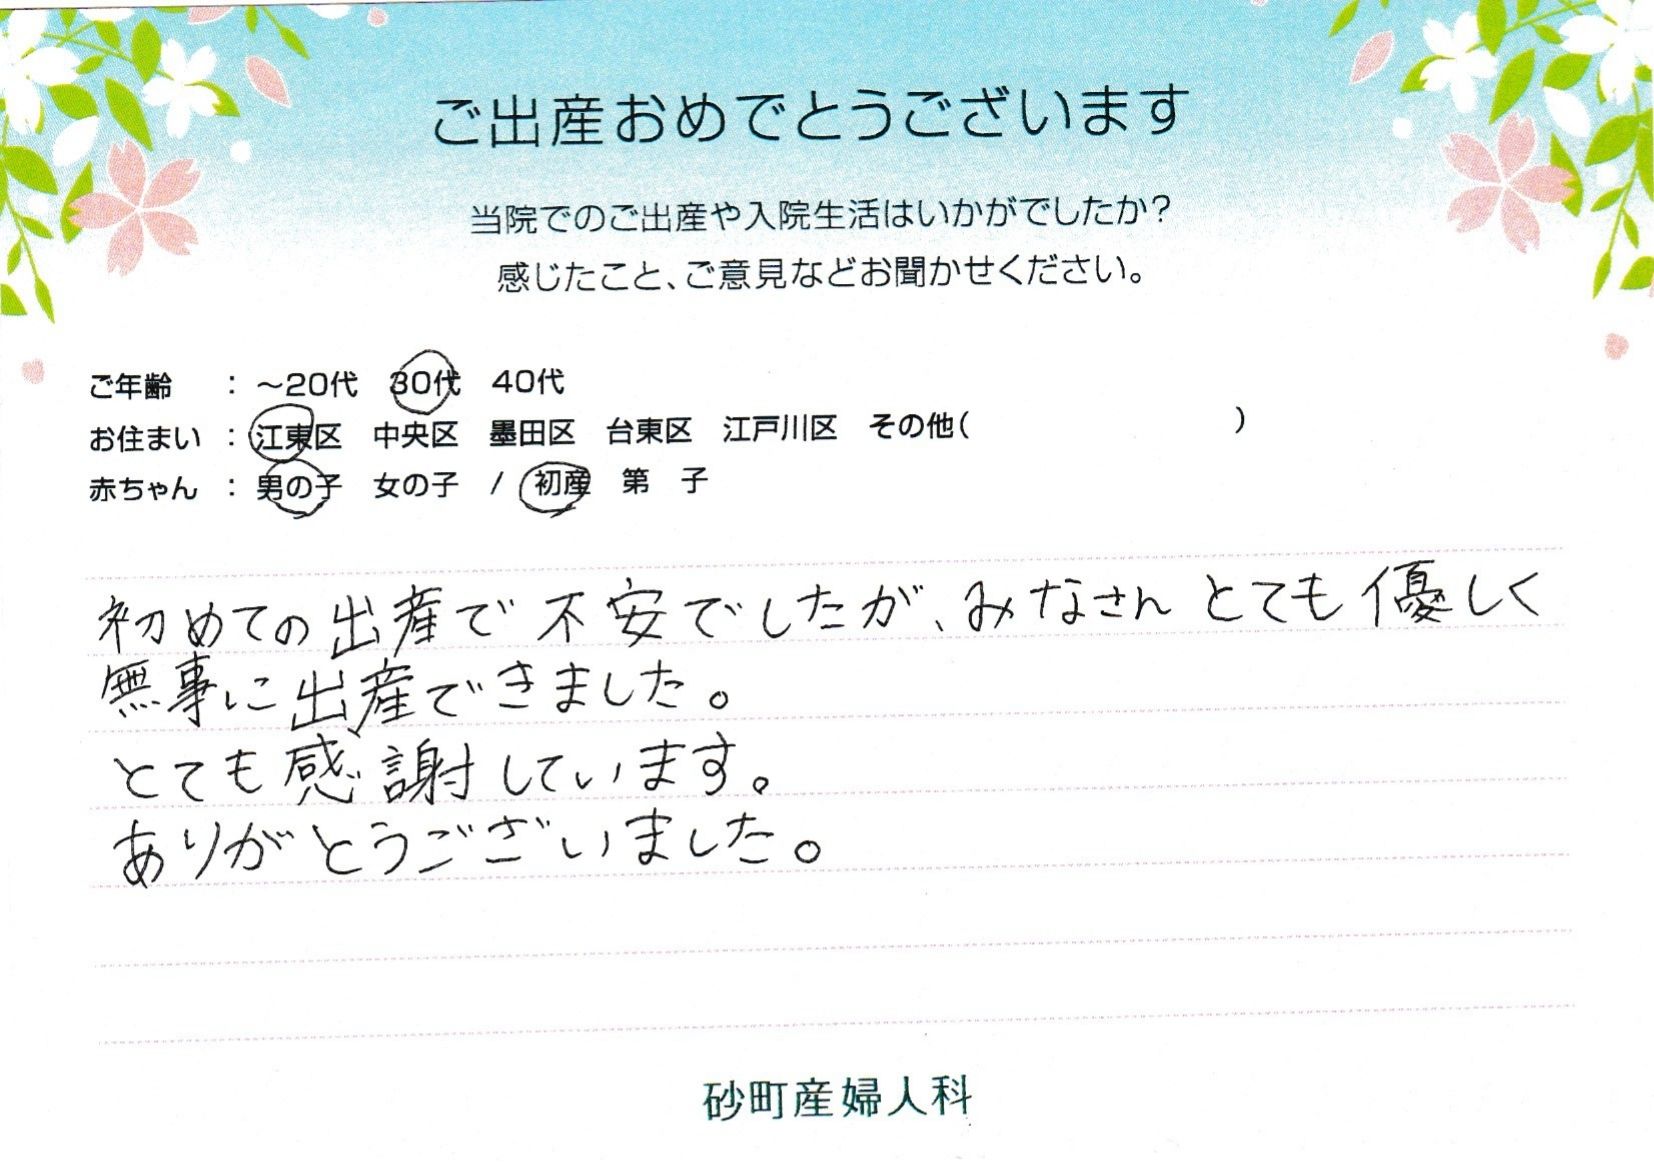 ご出産おめでとうございます
当院でのご出産や入院生活はいかがでしたか?
感じたこと、ご意見などお聞かせください。
ご年齢 : ～20代 30代 40代
お住まい : 江東区 中央区 墨田区 台東区 江戸川区 その他( )
赤ちゃん : 男の子 女の子 / 初産 第 子
初めての出産で不安でしたが、みなさんとても優しく
無事に出産できました。
とても感謝しています。
ありがとうございました。
砂町産婦人科